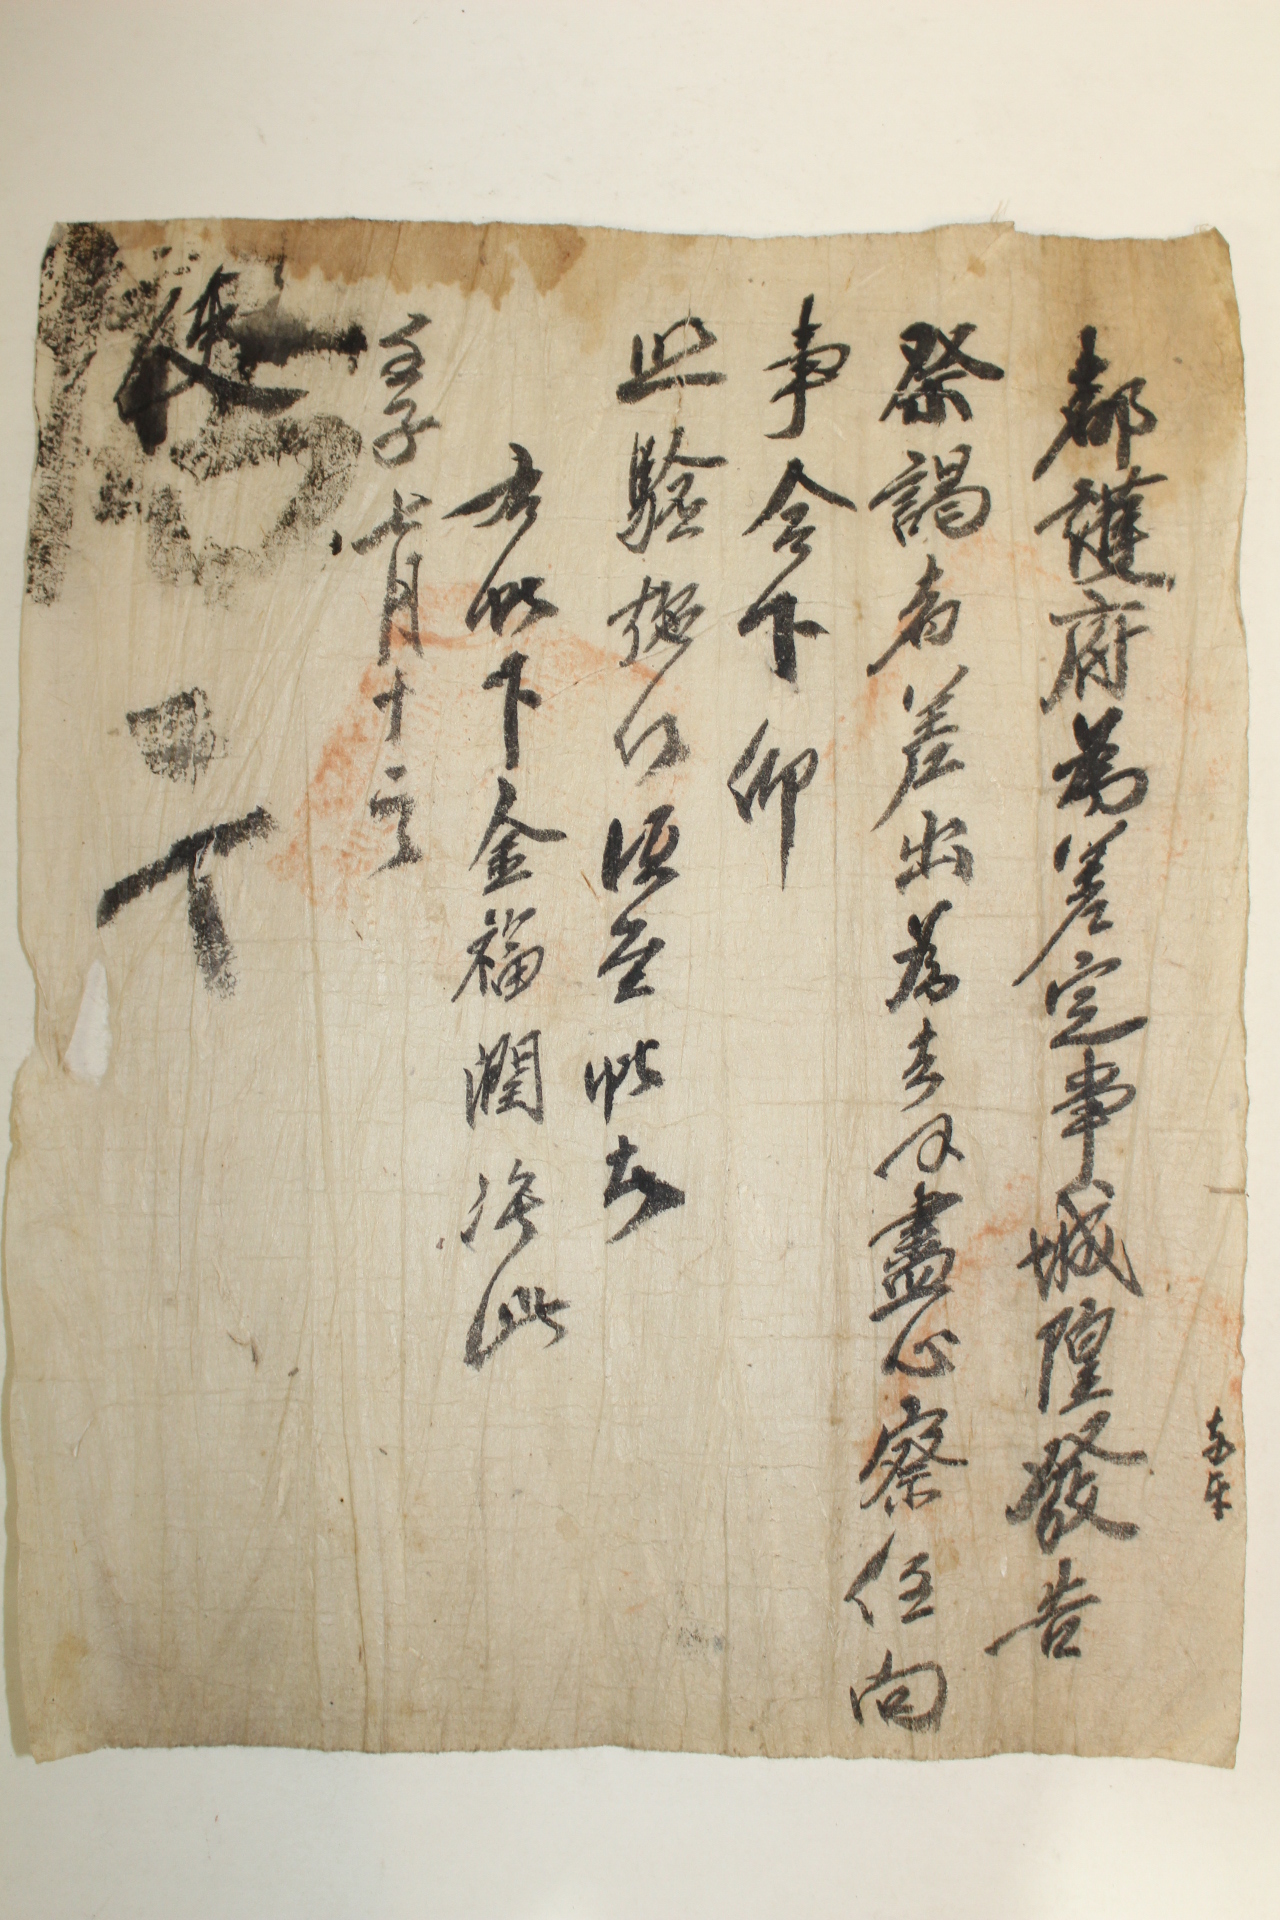 都護府爲差定事城隍發告
祭謁者差出爲去乎盡心察任向
事合下仰
照驗施行須至帖者
右帖下金福潤准此
壬子七月十二日
使